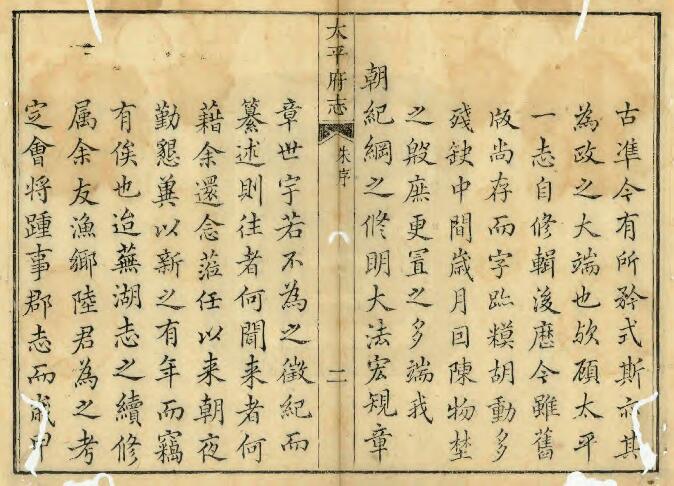 古準今有所矜式斯亦其
為政之大端也欤碩太平
一志自修輯後歷今雖舊
版尚存而字跡糢胡動多
殘缺中間歲月囙陳物埜
之殷庶更置之多端我
朝紀綱之修明大法宏規章
太平府志
朱序
二
章世宇若不為之徵紀而
纂述則往者何聞来者何
藉余還念蒞任以来朝夜
勤懇兾以新之有年而竊
有俟也迨蕪湖志之續修
属余友漁鄉陸君為之考
定會将踵事郡志而歲甲